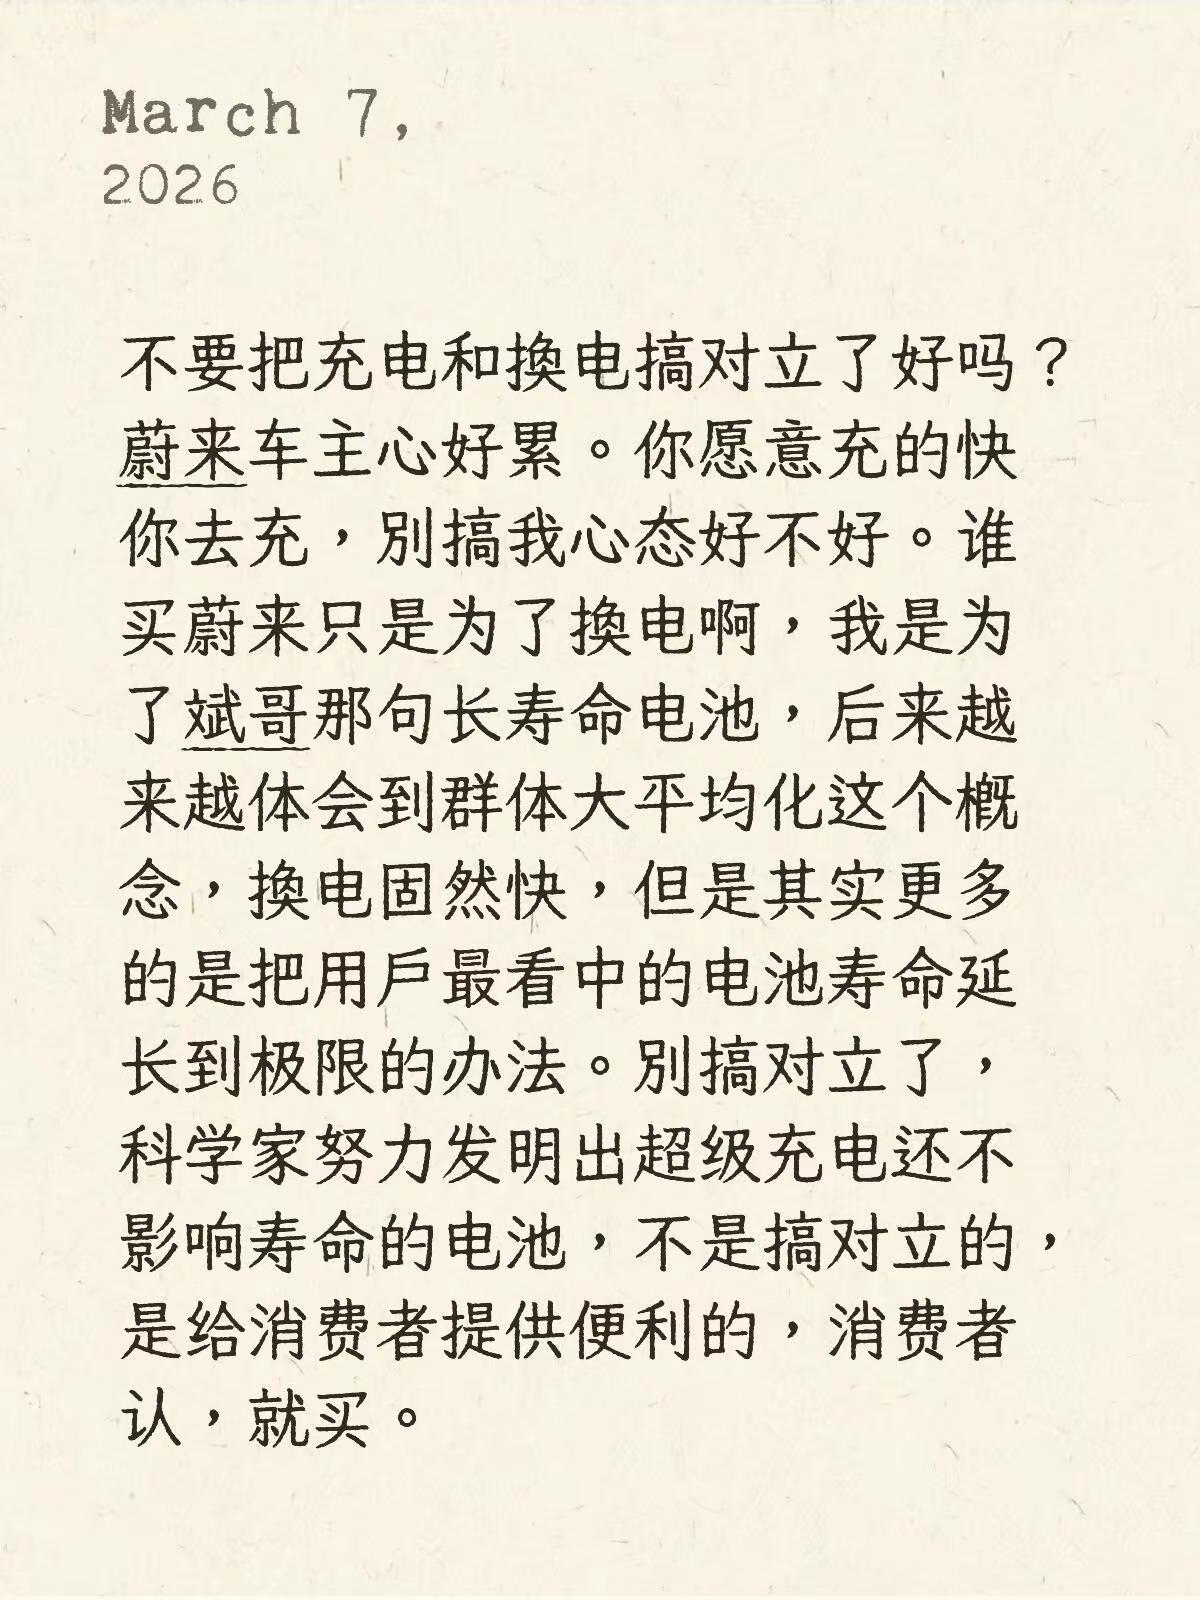 March 7,
2026
不要把充电和换电搞对立了好吗？
蔚来车主心好累。你愿意充的快
你去充，别搞我心态好不好。谁
买蔚来只是为了换电啊，我是为
了斌哥那句长寿命电池，后来越
来越体会到群体大平均化这个概
念，换电固然快，但是其实更多
的是把用户最看中的电池寿命延
长到极限的办法。别搞对立了，
科学家努力发明出超级充电还不
影响寿命的电池，不是搞对立的，
是给消费者提供便利的，消费者
认，就买。